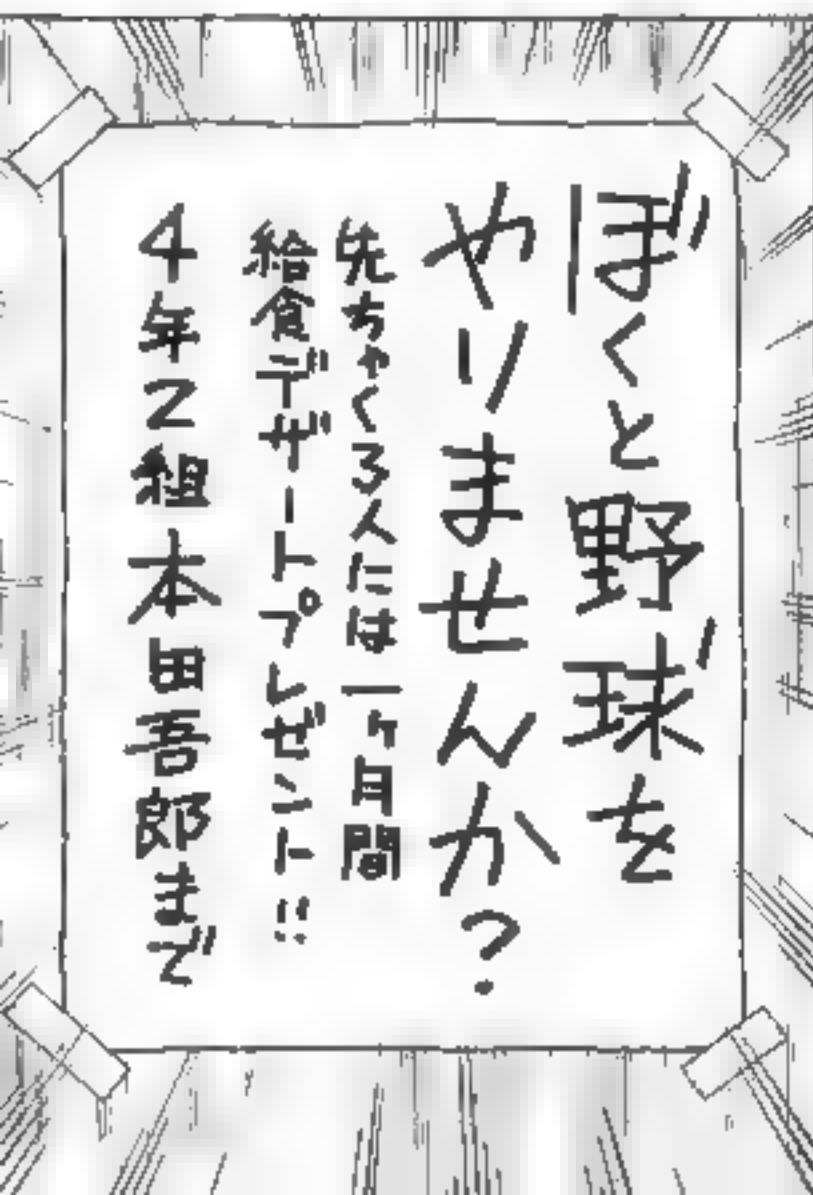 ぼくと野球を
やりませんか?
先ちゃくろ人には一ヶ月間
給食デザートプレゼント!!
4年2組本田吾郎まで